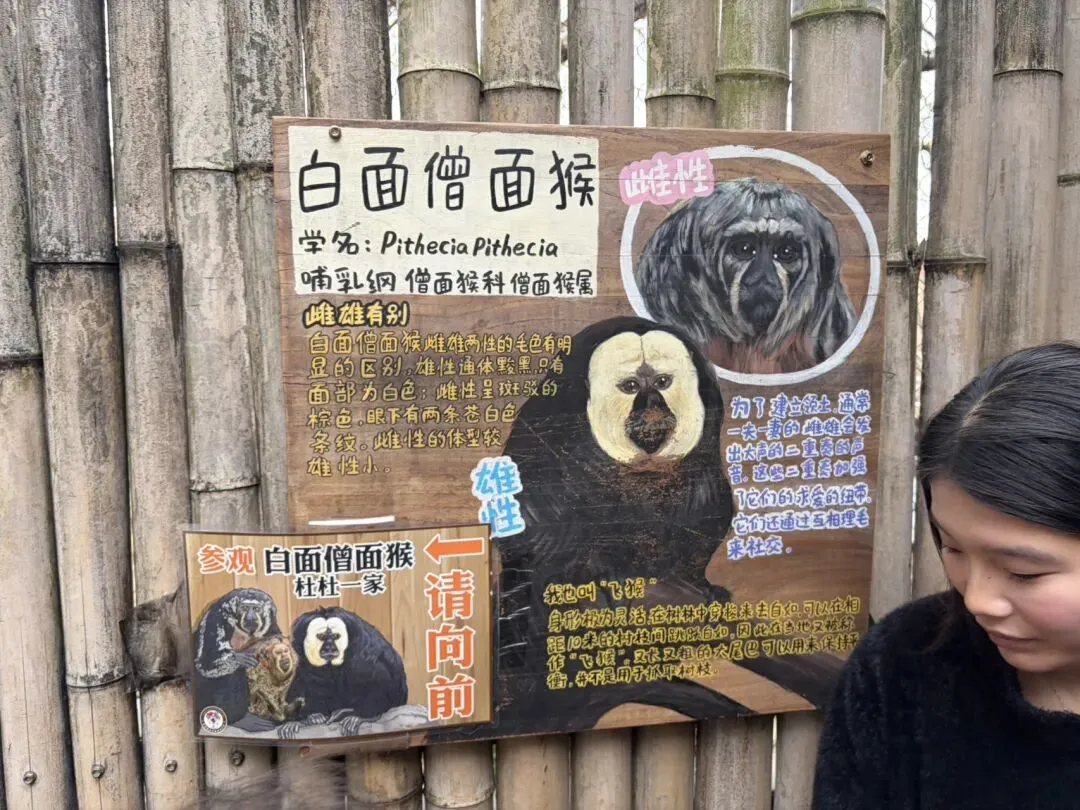 白面僧面猴
学名：Pithecia Pithecia
哺乳纲 僧面猴科 僧面猴属
雌雄有别
白面僧面猴雌雄两性的毛色有明
显的区别，雄性通体黢黑，只有
面部为白色；雌性呈斑驳的
棕色，眼下有两条苍白色
条纹。雌性的体型较
雄性小。
雌性
雄性
为了建立领土，通常
一夫一妻的雌雄会发
出大声的二重奏的声
音，这些二重奏加强
了它们的求爱的纽带，
它们还通过互相理毛
来社交。
我也叫“飞猴”
身形极为灵活，在树林中穿梭来去自如，可以在相
距10米的树枝间跳跃自如，因此在当地又被称
作“飞猴”，又长又粗的大尾巴可以用来保持平
衡，并不是用于抓取树枝。
参观 白面僧面猴
杜杜一家
请向前